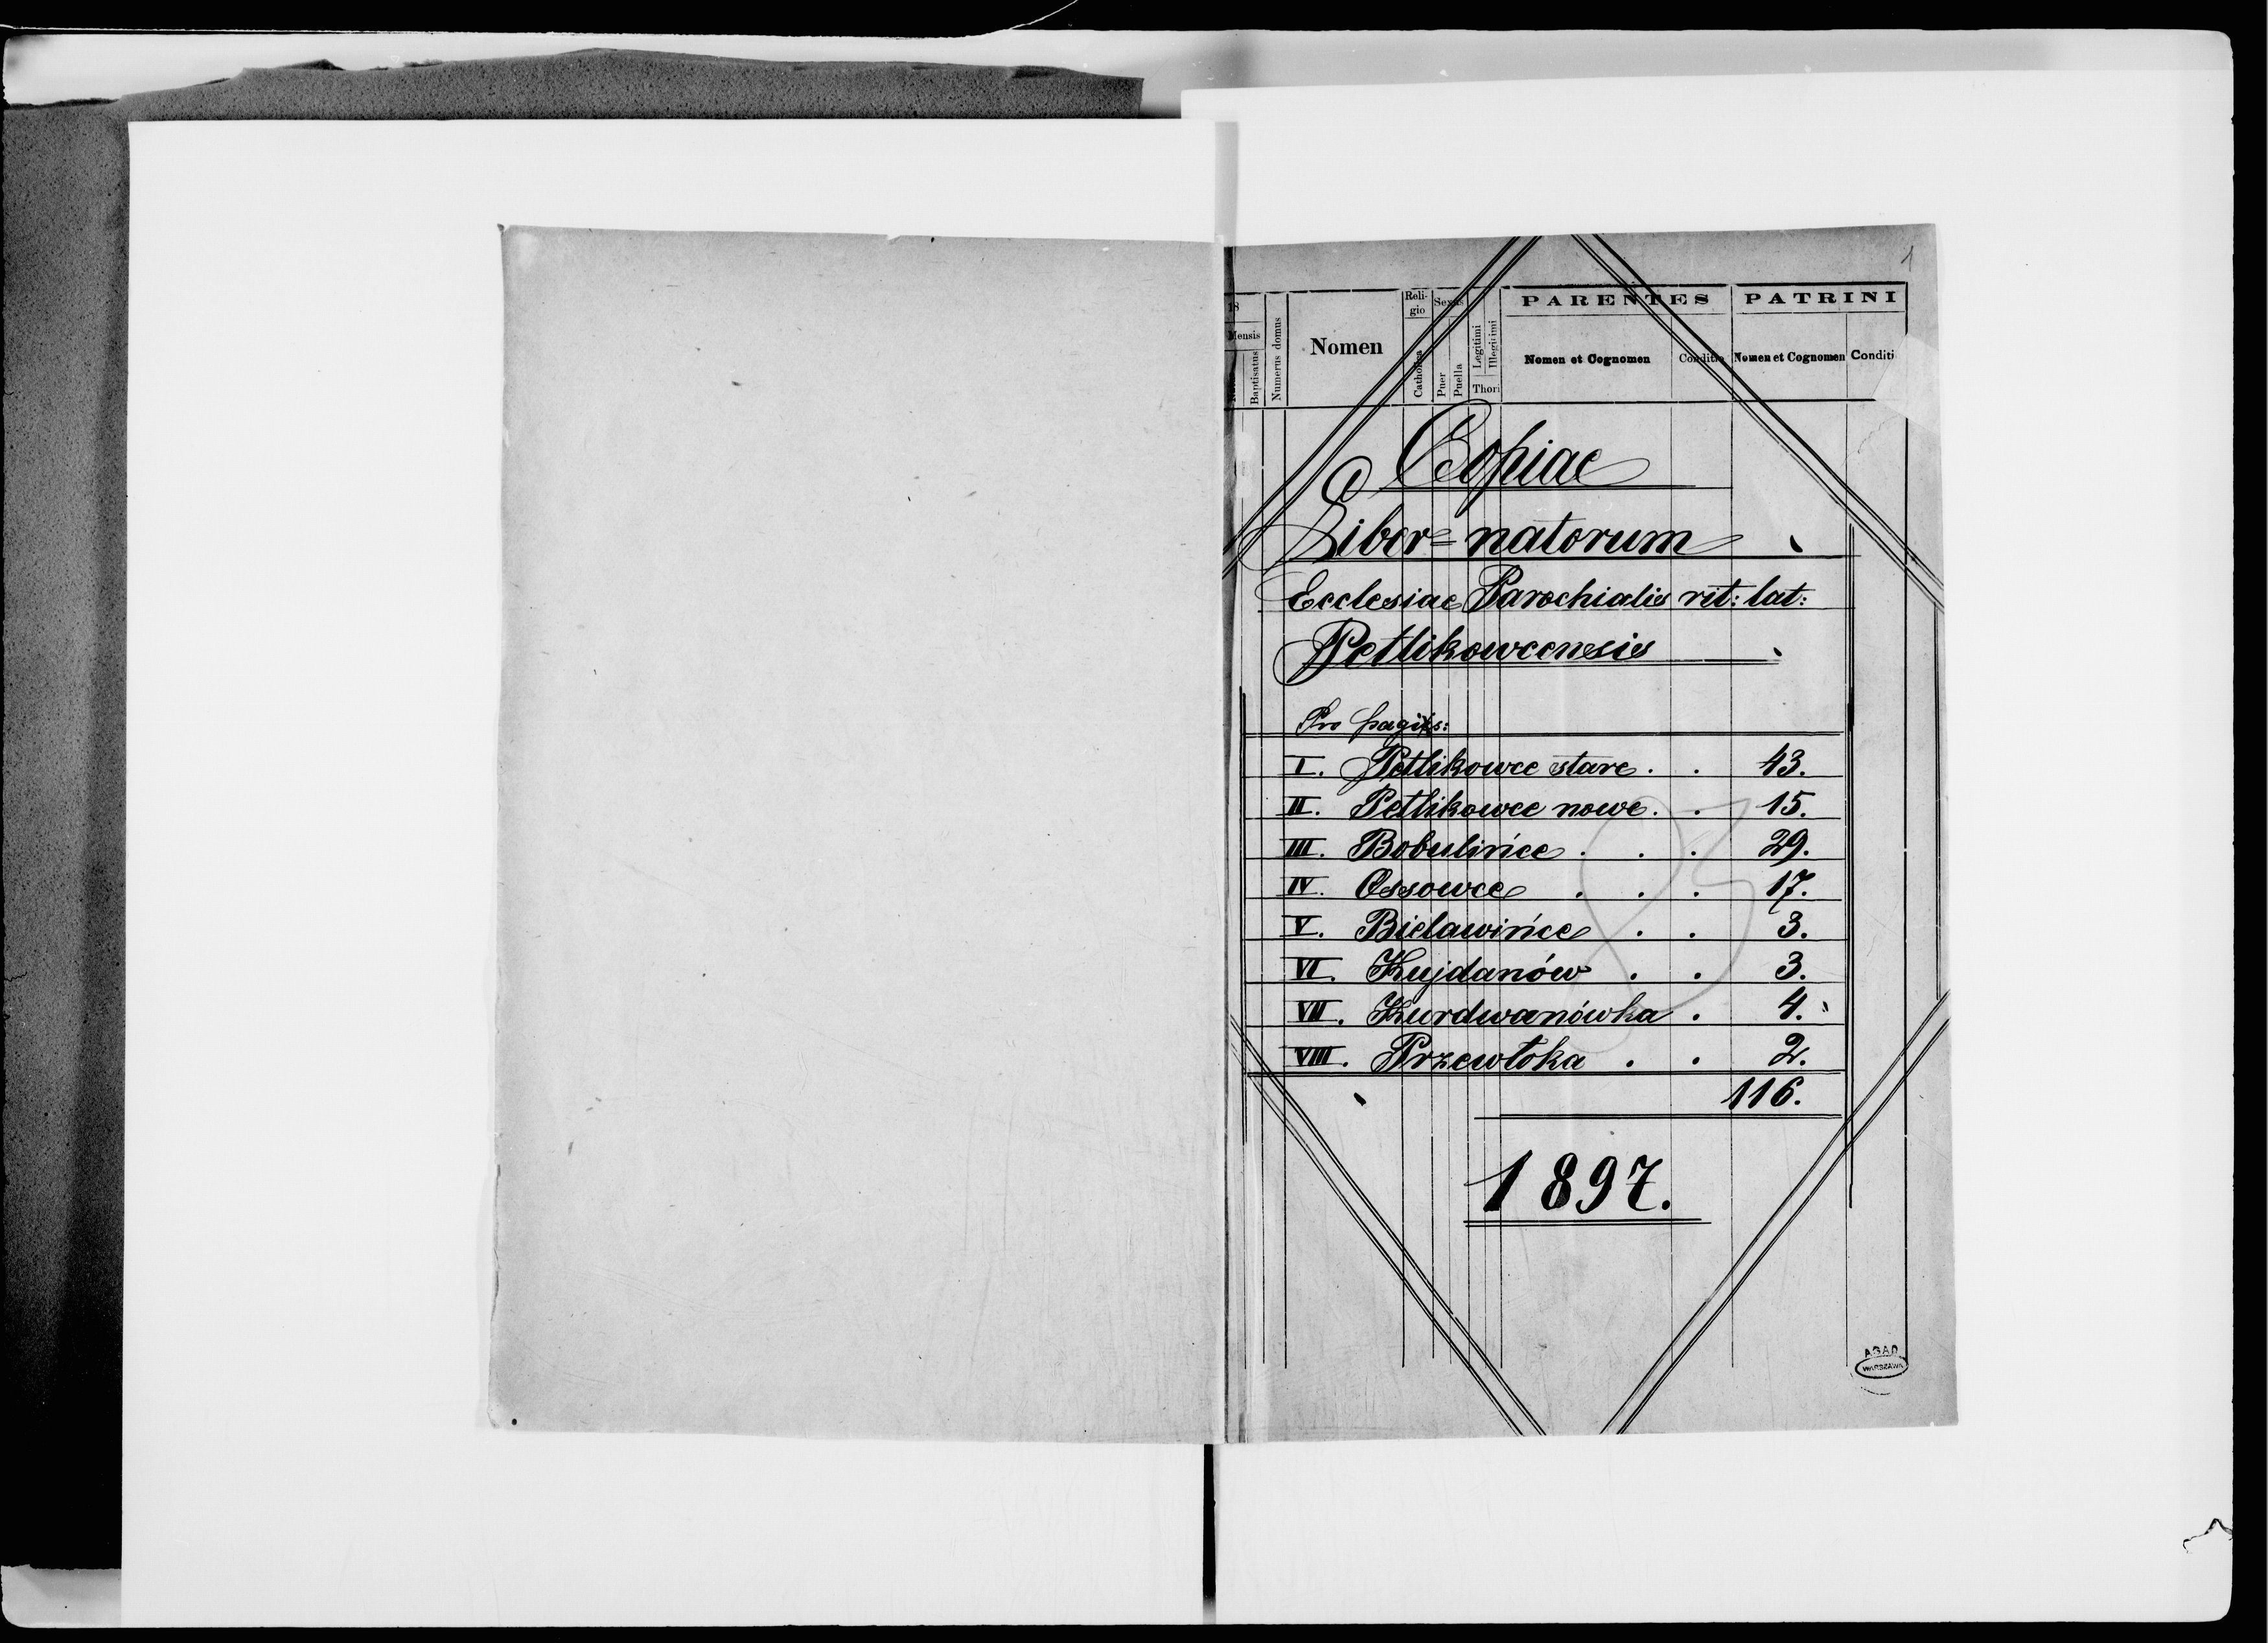 1
18
Mensis
Baptisatus
Numerus domus
Nomen
Religio
Catholica
Sexus
Puer
Puella
Legitimi
Illegitimi
Thori
PARENTES
Nomen et Cognomen
Conditio
PATRINI
Nomen et Cognomen
Conditi
Copiae
Liber=natorum
Ecclesiae Parochialis rit: lat:
Petlikowcensis
Pro pagis:
I. Petlikowce stare . . 43.
II. Petlikowce nowe . . 15.
III. Bobulińce . . . 29.
IV. Ossowce . . . 17.
V. Bielawińce . . 3.
VI. Kujdanów . . 3.
VII. Kurdwanówka . 4.
VIII. Przewłoka . . 2.
116.
1897.
AGAD
WARSZAWA